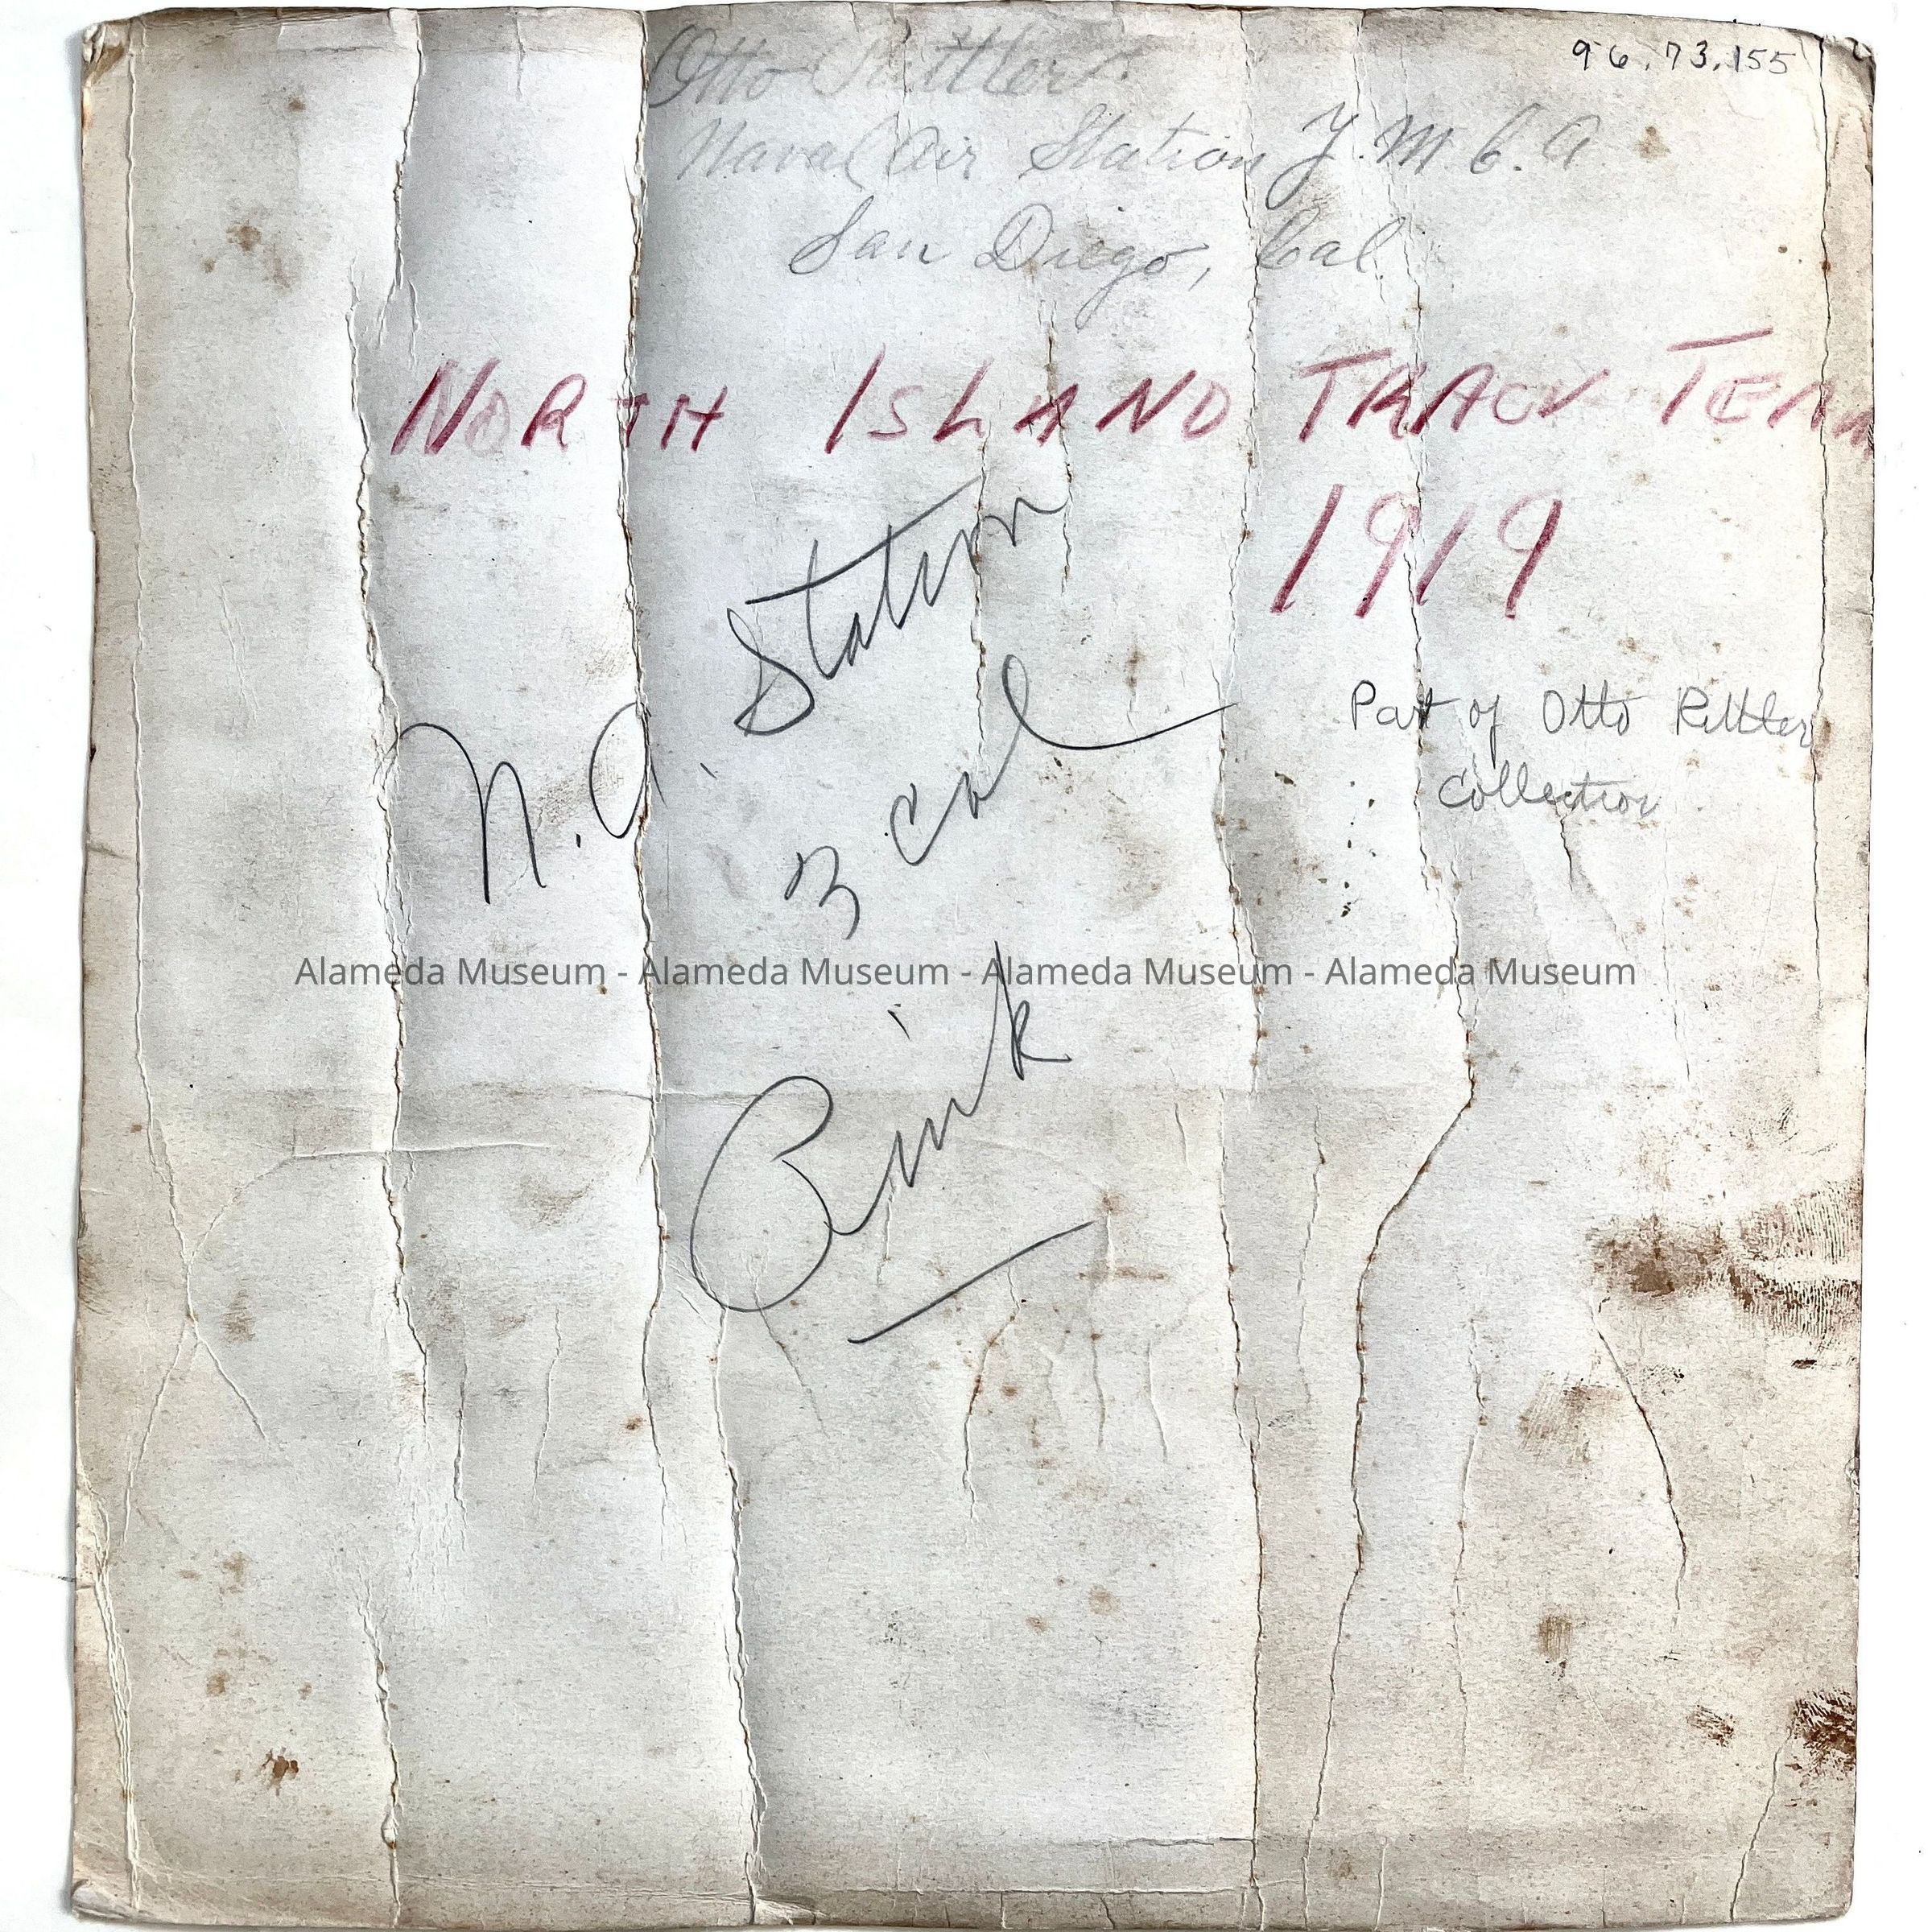 96.73.155
Otto Rittler
Naval Air Station Y.M.C.A
San Diego, Cal.
NORTH ISLAND TRACK TEAM
1919
N.A. Station
3 col
Pink
Part of Otto Rittler
Collection
Alameda Museum - Alameda Museum - Alameda Museum - Alameda Museum